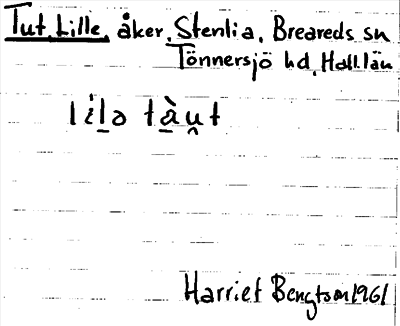 Tut, Lille, åker, Stenlia, Breareds sn
Tönnersjö hd, Hall. län
lìl̠ə tà̠u̯t
Harriet Bengtson 1961